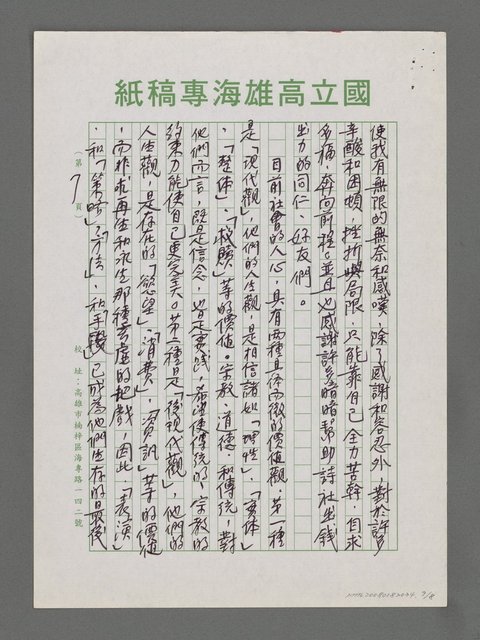 國立高雄海專稿紙
使我有無限的無奈和感嘆，除了感謝和容忍外，對於許多
辛酸和困頓，挫折與局限，只能靠自己全力苦幹，自求
多福，奔向前程。並且也感謝許多暗暗幫助詩社出錢
出力的同仁、好友們。
目前社會的人心，具有兩種具体而微的價值觀，第一種
是「現代觀」，他們的人生觀，是相信諸如「理性」、「實体」
、「整体」、「救贖」等的價值。宗教、道德、和傳統，對
他們而言，既是信念，也是實踐，希望使傳統的、宗教的
約束力能使自己更完美。第二種是「後現代觀」，他們的
人生觀，是存在的「慾望」、「消費」、「資訊」等的價值
，而非求再生和永生那種玄虛的把戲，因此，「表演」
、和「策略」、「方法」、和「手段」已成為他們生存的最後
（第 7 頁）
校 址：高雄市楠梓區海專路一四二號
NMTL20080182004 7/8